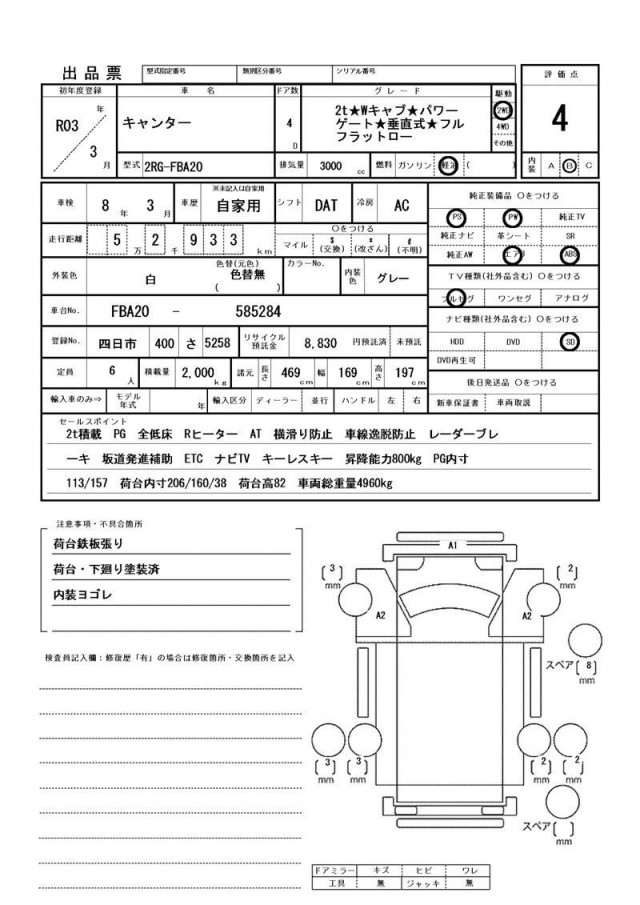 出品票 型式指定番号 類別区分番号 シリアル番号 評価点
初年度登録 車名 ドア数 グレード 駆動
R03 年 3 月 キャンター 4 D 2t★Wキャブ★パワー 2WD 4
ゲート★垂直式★フル 4WD
フラットロー その他
型式 2RG-FBA20 排気量 3000 cc 燃料 ガソリン 軽油 ( ) 内装 A B C
車検 8 年 3 月 車歴 ※未記入は自家用 自家用 シフト DAT 冷房 AC 純正装備品 ○をつける
走行距離 5 万 2 千 9 3 3 km ○をつける マイル $ (交換) * (改ざん) # (不明) PS PW 純正TV
純正ナビ 革シート SR
外装色 白 色替(元色) 色替無 ( ) カラーNo. 内装色 グレー 純正AW エアB ABS
TV種類(社外品含む) ○をつける
車台No. FBA20 - 585284 フルセグ ワンセグ アナログ
ナビ種類(社外品含む) ○をつける
登録No. 四日市 400 さ 5258 リサイクル預託金 8,830 円預託済 未預託 HDD DVD SD
DVD再生可
定員 6 人 積載量 2,000 kg 諸元 長さ 469 cm 幅 169 cm 高さ 197 cm 後日発送品 ○をつける
輸入車のみ⇒ モデル年式 年 輸入区分 ディーラー 並行 ハンドル 左 右 新車保証書 車両取説
セールスポイント
2t積載 PG 全低床 Rヒーター AT 横滑り防止 車線逸脱防止 レーダーブレ
ーキ 坂道発進補助 ETC ナビTV キーレスキー 昇降能力800kg PG内寸
113/157 荷台内寸206/160/38 荷台高82 車両総重量4960kg
注意事項・不具合箇所
荷台鉄板張り
荷台・下廻り塗装済
内装ヨゴレ
検査員記入欄:修復歴「有」の場合は修復箇所・交換箇所を記入
A1
[3] mm [2] mm
A2 A2
スペア[8] mm
[3] mm [3] mm [2] mm [2] mm
スペア[ ] mm
ドアミラー キズ ヒビ ワレ
工具 無 ジャッキ 無